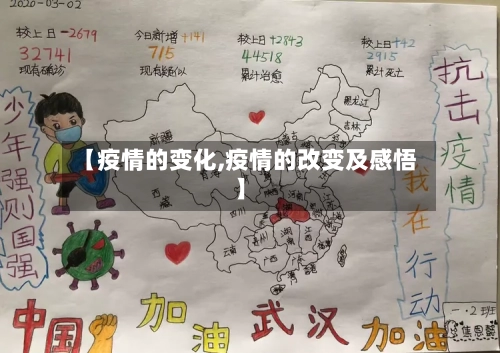 2020-03-02
较上日-2679
32741
现有确诊
今日新增+141
715
现有疑似
较上日+2843
44518
累计治愈
较上日+42
2915
累计死亡
抗击疫情
我在行动
少年强则国强
黑龙江
吉林
新疆
【疫情的变化,疫情的改变及感悟
】
四川
云南
贵州
广西
湖南
江西
广东
中国加油武汉加油
一·2班